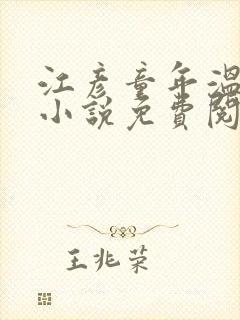 江彦童年温
小説免費閱
王兆荣